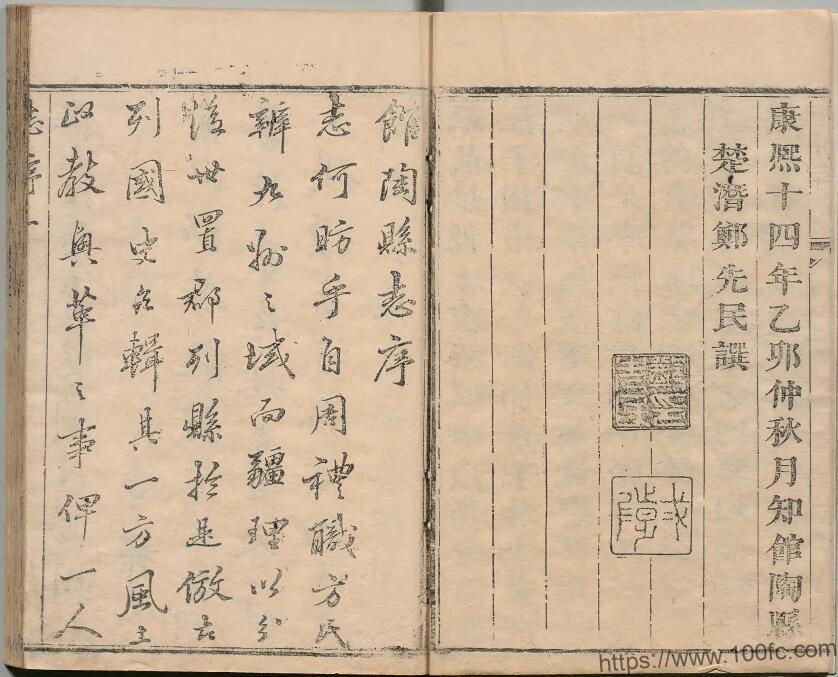 康熙十四年乙卯仲秋月知館陶縣
楚潛鄭先民譔
館陶縣志序
志何昉乎自周禮職方氏
辨九州之域而疆理以分
後世置郡列縣於是倣古
列國史各輯其一方風土
政教興革之事俾一人
志序
https://www.100fc.com